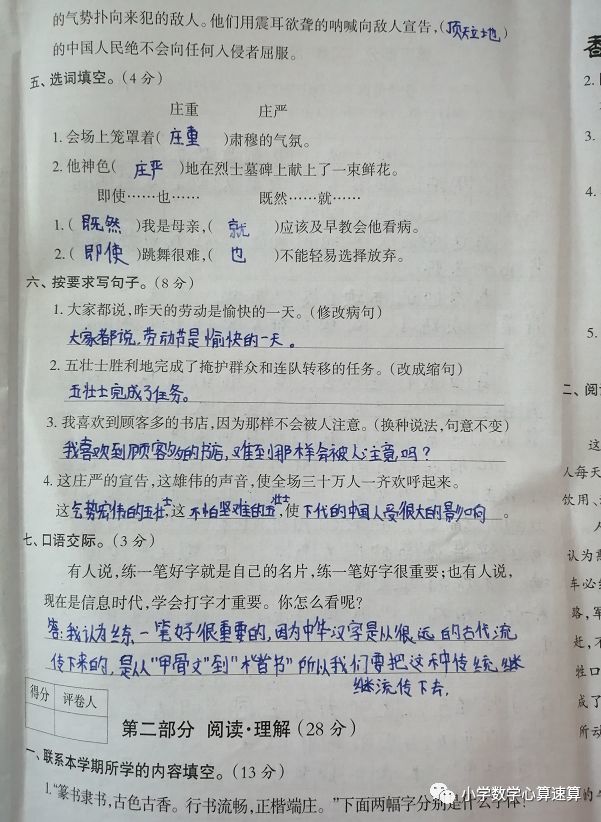 的气势扑向来犯的敌人。他们用震耳欲聋的呐喊向敌人宣告,(顶天立地)
的中国人民绝不会向任何入侵者屈服。
五、选词填空。(4分)
庄重 庄严
1. 会场上笼罩着( 庄重 )肃穆的气氛。
2. 他神色( 庄严 )地在烈士墓碑上献上了一束鲜花。
即使……也…… 既然……就……
1. ( 既然 )我是母亲,( 就 )应该及早教会他看病。
2. ( 即使 )跳舞很难,( 也 )不能轻易选择放弃。
六、按要求写句子。(8分)
1. 大家都说,昨天的劳动是愉快的一天。(修改病句)
大家都说,劳动节是愉快的一天。
2. 五壮士胜利地完成了掩护群众和连队转移的任务。(改成缩句)
五壮士完成了任务。
3. 我喜欢到顾客多的书店,因为那样不会被人注意。(换种说法,句意不变)
我喜欢到顾客多的书店,难到那样会被人注意吗?
4. 这庄严的宣告,这雄伟的声音,使全场三十万人一齐欢呼起来。
这气势宏伟的五壮士,这不怕坚难的五壮士,使下代的中国人受很大的影响。
七、口语交际。(3分)
有人说,练一笔好字就是自己的名片,练一笔好字很重要;也有人说,
现在是信息时代,学会打字才重要。你怎么看呢?
答:我认为练一笔好很重要的,因为中华汉字是从很远的古代流
传下来的,是从"甲骨文"到"楷书"所以我们要把这种传统继
继流传下去,
得分 评卷人
第二部分 阅读·理解(28分)
一、联系本学期所学的内容填空。(13分)
1. "篆书隶书,古色古香。行书流畅,正楷端庄。"下面两幅字分别是什么字体?
小学数学心算速算
2.
3.
4.
5.
二、阅
这
人每天
饮用
认为离
车必
路,军
赶,不
牲口
成了
所动